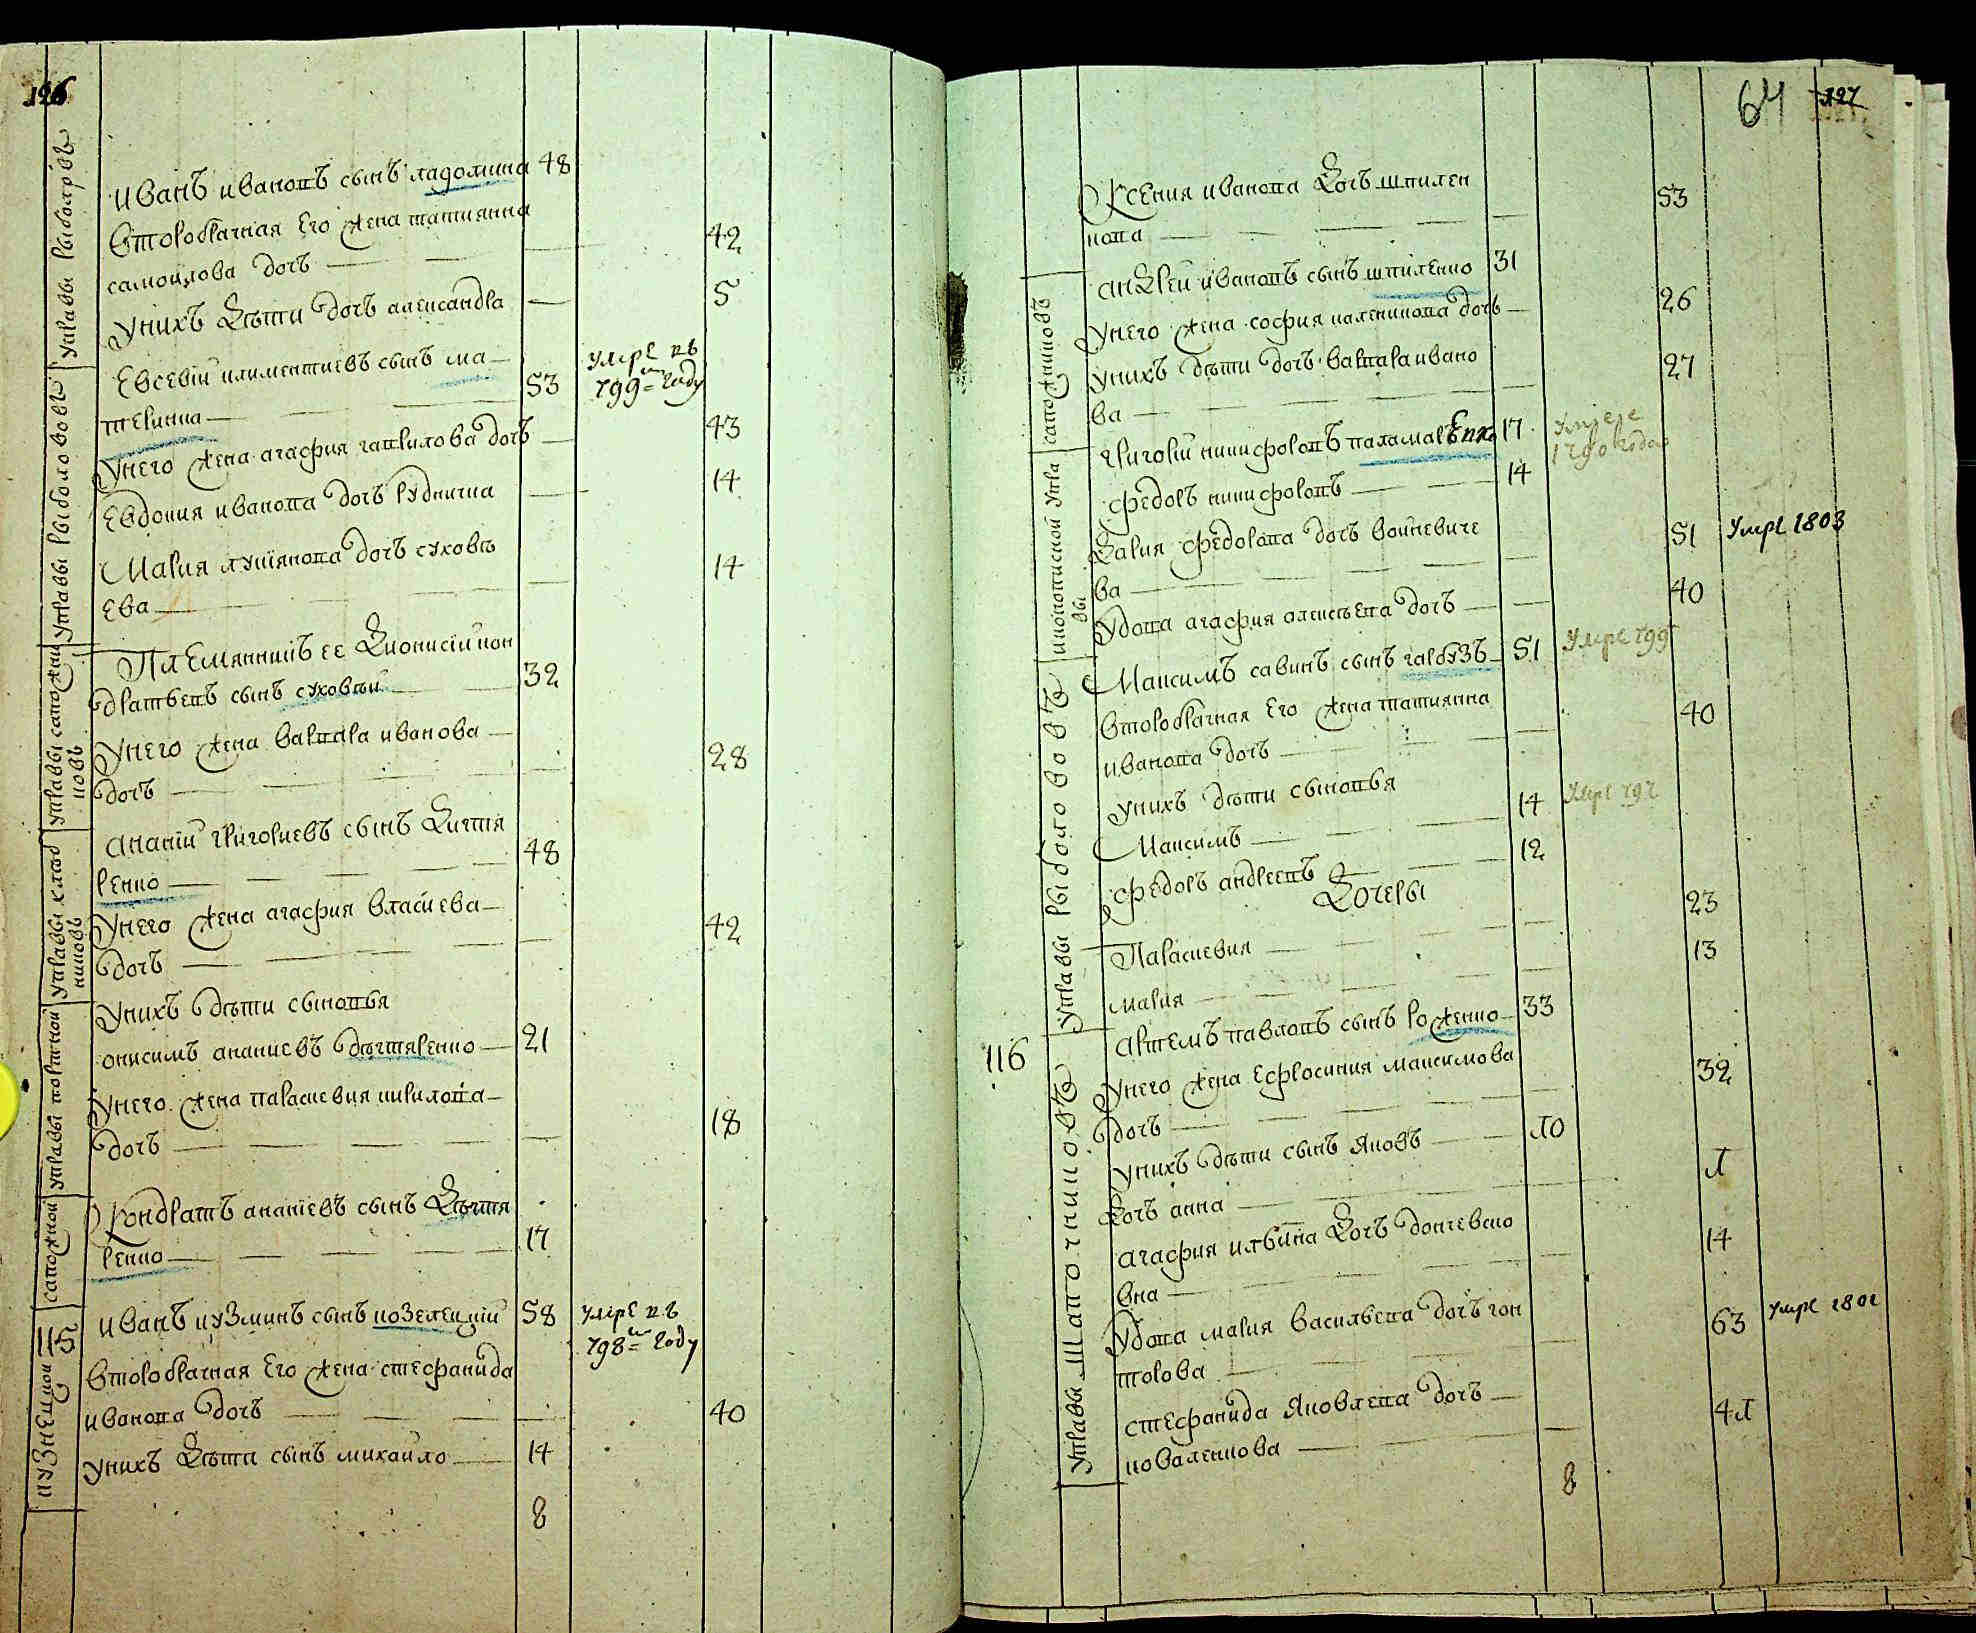 126
управы рыболовровъ
иванъ ивановъ сынъ ладомина 48
второбрачная его жена татиянна
самоилова дочь 42
унихъ дѣти дочь александра 5
управы рыболововъ
Евсевiй климентиевъ сынъ ма
терина 53 умре въ 799м году
унего жена агафия гаврилова дочь 43
Евдокия иванова дочь рудничиа 14
Мария лукiянова дочь сухове
ева 14
управы сапожниковъ
Племянникъ ее дионисiй кон
дратьевъ сынъ суховѣй 32
унего жена варвара иванова
дочь 28
управы кладниковъ
ананiй григориевъ сынъ дигтя
ренко 48
унего жена агафия власиева
дочь 42
унихъ дѣти сыновья
управы портной
онисимъ ананиевъ дѣгтяренко 21
унего жена параскевия кирилова
дочь 18
сапожной
Кондратъ ананiевъ сынъ дѣгтя
ренко 17
115
кузнецкой
иванъ кузминъ сынъ козелецкiй 58 умре въ
798м году
второбрачная его жена стефанида
иванова дочь 40
унихъ дѣти сынъ михаило 14
8
64 127
Ксения иванова дочь шпилен
кова 53
сапожниковъ
андрей ивановъ сынъ шпиленко 31
унего жена софия каленикова дочь 26
унихъ дѣти дочь варвара ивано
ва 27
иконописной управы
григорiй никифоровъ паламаренко 17 умре
1790 года
федоръ никифоровъ 14
дария федорова дочь войневиче
ва 51 умре 1803
удова агафия алексѣева дочь 40
управы рыболововъ
Максимъ савинъ сынъ гарбузъ 51 умре 799
второбрачная его жена татиянна
иванова дочь 40
унихъ дѣти сыновья
Максимъ 14 умре 797
федоръ андреевъ 12
дочеры
Параскевия 23
мария 13
116
управы шапочниковъ
артемъ павловъ сынъ роженко 33
унего жена ефросиния максимова
дочь 32
унихъ дѣти сынъ яковъ 10
дочь анна 1
агафия ильина дочь донченко
вна 14
удова мария васильева дочь гон
торова 63 умре 1801
стефанида яковлева дочь
коваленкова 41
8